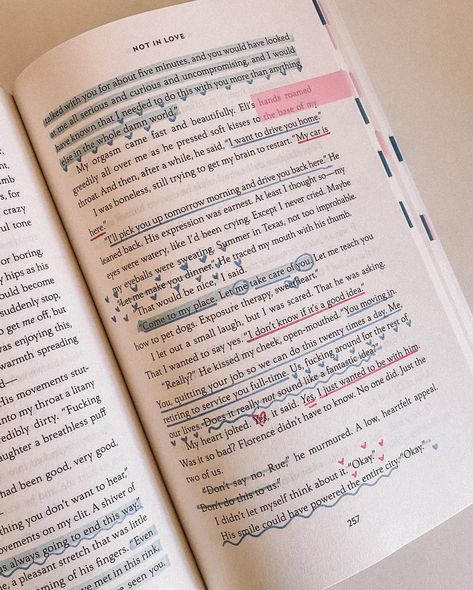 s, for
crazy
ful tone
or boring
y hips as his
ould become
suddenly stop.
to get me off, but
was enjoying this,
warmth spreading
His movements stut-
into my throat a litany
credibly dirty. “Fucking
aughter a breathless puff
had been good, very good.
hing you don’t want to hear.”
ovements on my clit. A shiver of
gs always going to end this way.
e, a pleasant stretch that was little
oming of his fingers. “Even
we met in this rink.
e seen you.
NOT IN LOVE
talked with you for about five minutes, and you would have looked
at me all serious and curious and uncompromising, and I would
have known that I needed to do this with you more than anything
else in the whole damn world.”
My orgasm came fast and beautifully. Eli’s hands roamed
greedily all over me as he pressed soft kisses to the base of my
throat. And then, after a while, he said, “I want to drive you home.”
I was boneless, still trying to get my brain to restart. “My car is
here.”
“I’ll pick you up tomorrow morning and drive you back here.” He
leaned back. His expression was earnest. At least I thought so—my
eyes were watery, like I’d been crying. Except I never cried. Maybe
my eyeballs were sweating. Summer in Texas, not too improbable.
“Let me make you dinner.” He traced my mouth with his thumb.
That would be nice, I said.
“Come to my place. Let me take care of you. Let me teach you
how to pet dogs. Exposure therapy, sweetheart.”
I let out a small laugh, but I was scared. That he was asking.
That I wanted to say yes. “I don’t know if it’s a good idea.”
“Really?” He kissed my cheek, open-mouthed. “You moving in.
You, quitting your job so we can do this twenty times a day. Me,
retiring to service you full-time. Us, fucking around for the rest of
our lives. Does it really not sound like a fantastic idea?”
My heart jolted. Yes, it said. Yes, I just wanted to be with him.
Was it so bad? Florence didn’t have to know. No one did. Just the
two of us.
“Don’t say no, Rue,” he murmured. A low, heartfelt appeal.
“Don’t do this to us.”
I didn’t let myself think about it. “Okay.”
His smile could have powered the entire city. “Okay.”
257